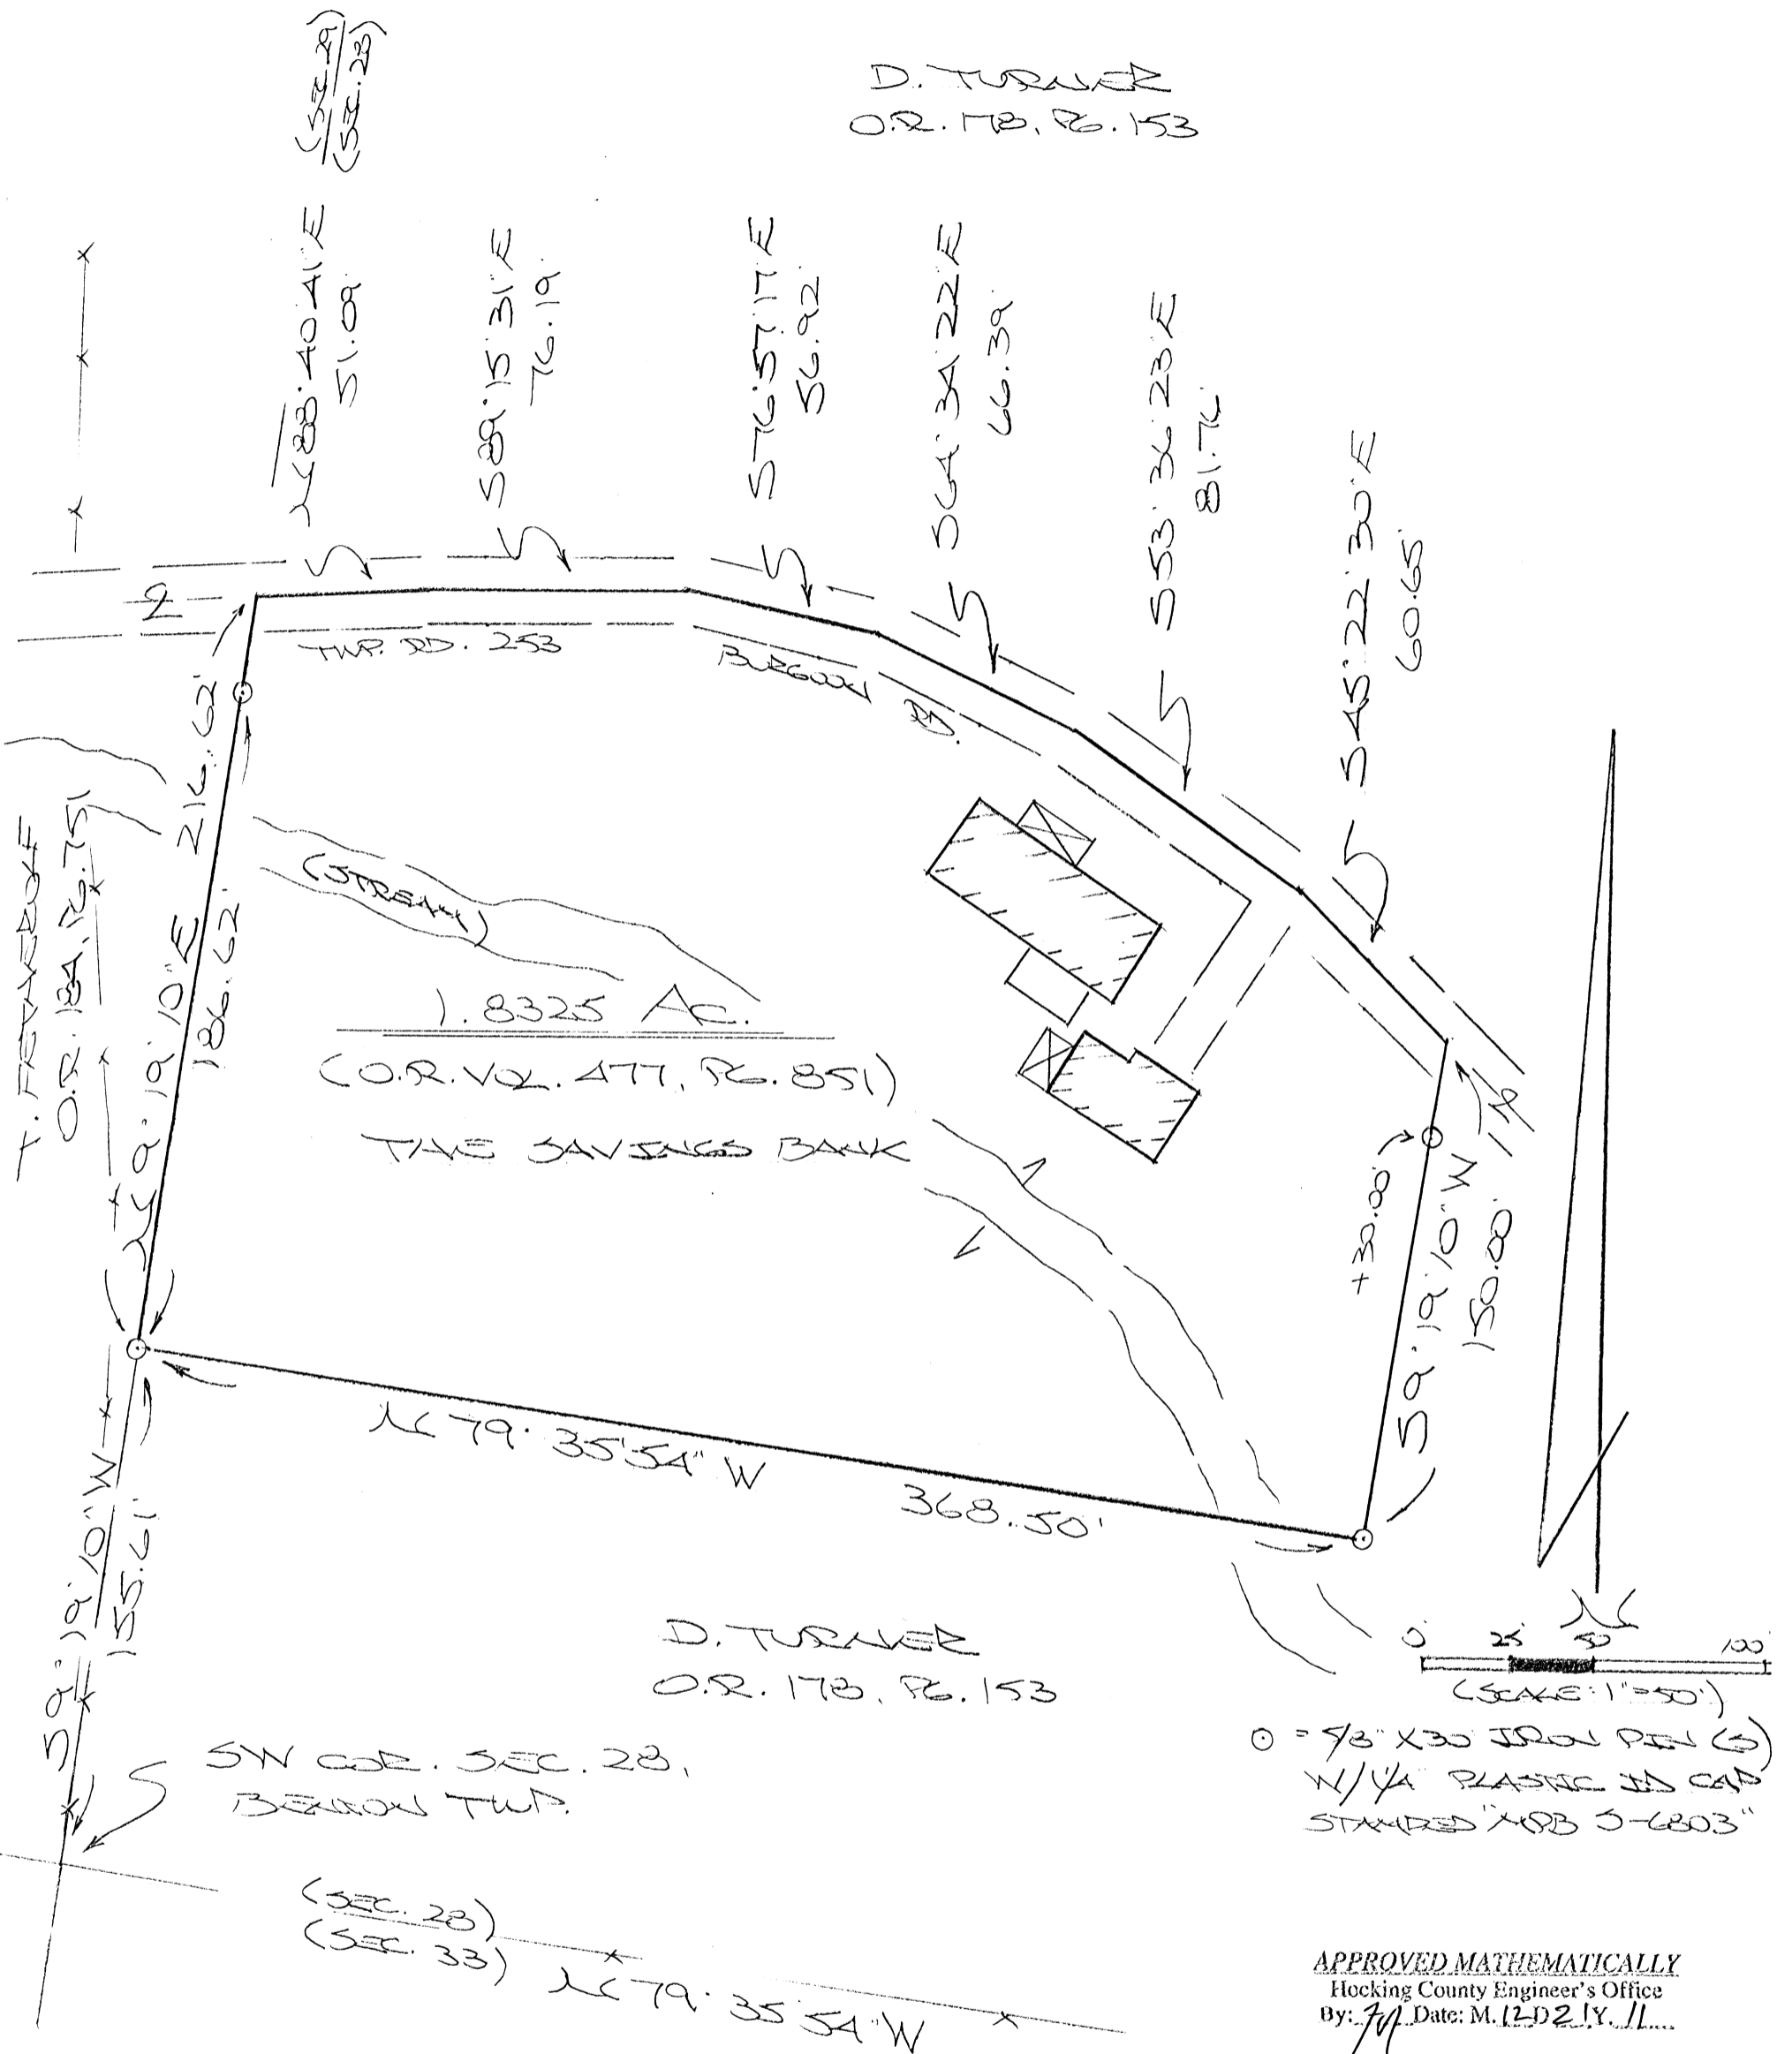 D. TURNER
O.R. 178, PG. 153
(SEC. 29)
(SEC. 28)
N 88° 40' 41" E
51.09'
S 89° 15' 31" E
76.19'
S 76° 57' 17" E
56.92'
S 64° 34' 22" E
66.39'
S 53° 36' 23" E
81.76'
S 45° 22' 30" E
60.65'
TWP. RD. 253
BURGOON RD.
216.62'
N 9° 19' 10" E
186.62'
O.R. 184, PG. 751
(STREAM)
1.8325 Ac.
(O.R. VOL. 477, PG. 851)
THE SAVINGS BANK
+30.00'
S 9° 19' 10" W
150.00'
N 79° 35' 54" W
368.50'
S 9° 19' 10" W
155.61'
D. TURNER
O.R. 178, PG. 153
SW COR. SEC. 28,
BENTON TWP.
(SEC. 28)
(SEC. 33)
N 79° 35' 54" W
N
0 25' 50' 100'
(SCALE: 1"=50')
⊙ = 5/8" X 30" IRON PIN (S)
W/ 1 1/4" PLASTIC ID CAP
STAMPED "MPB S-6803"
APPROVED MATHEMATICALLY
Hocking County Engineer's Office
By: Date: M. 12 D 21 Y. 11